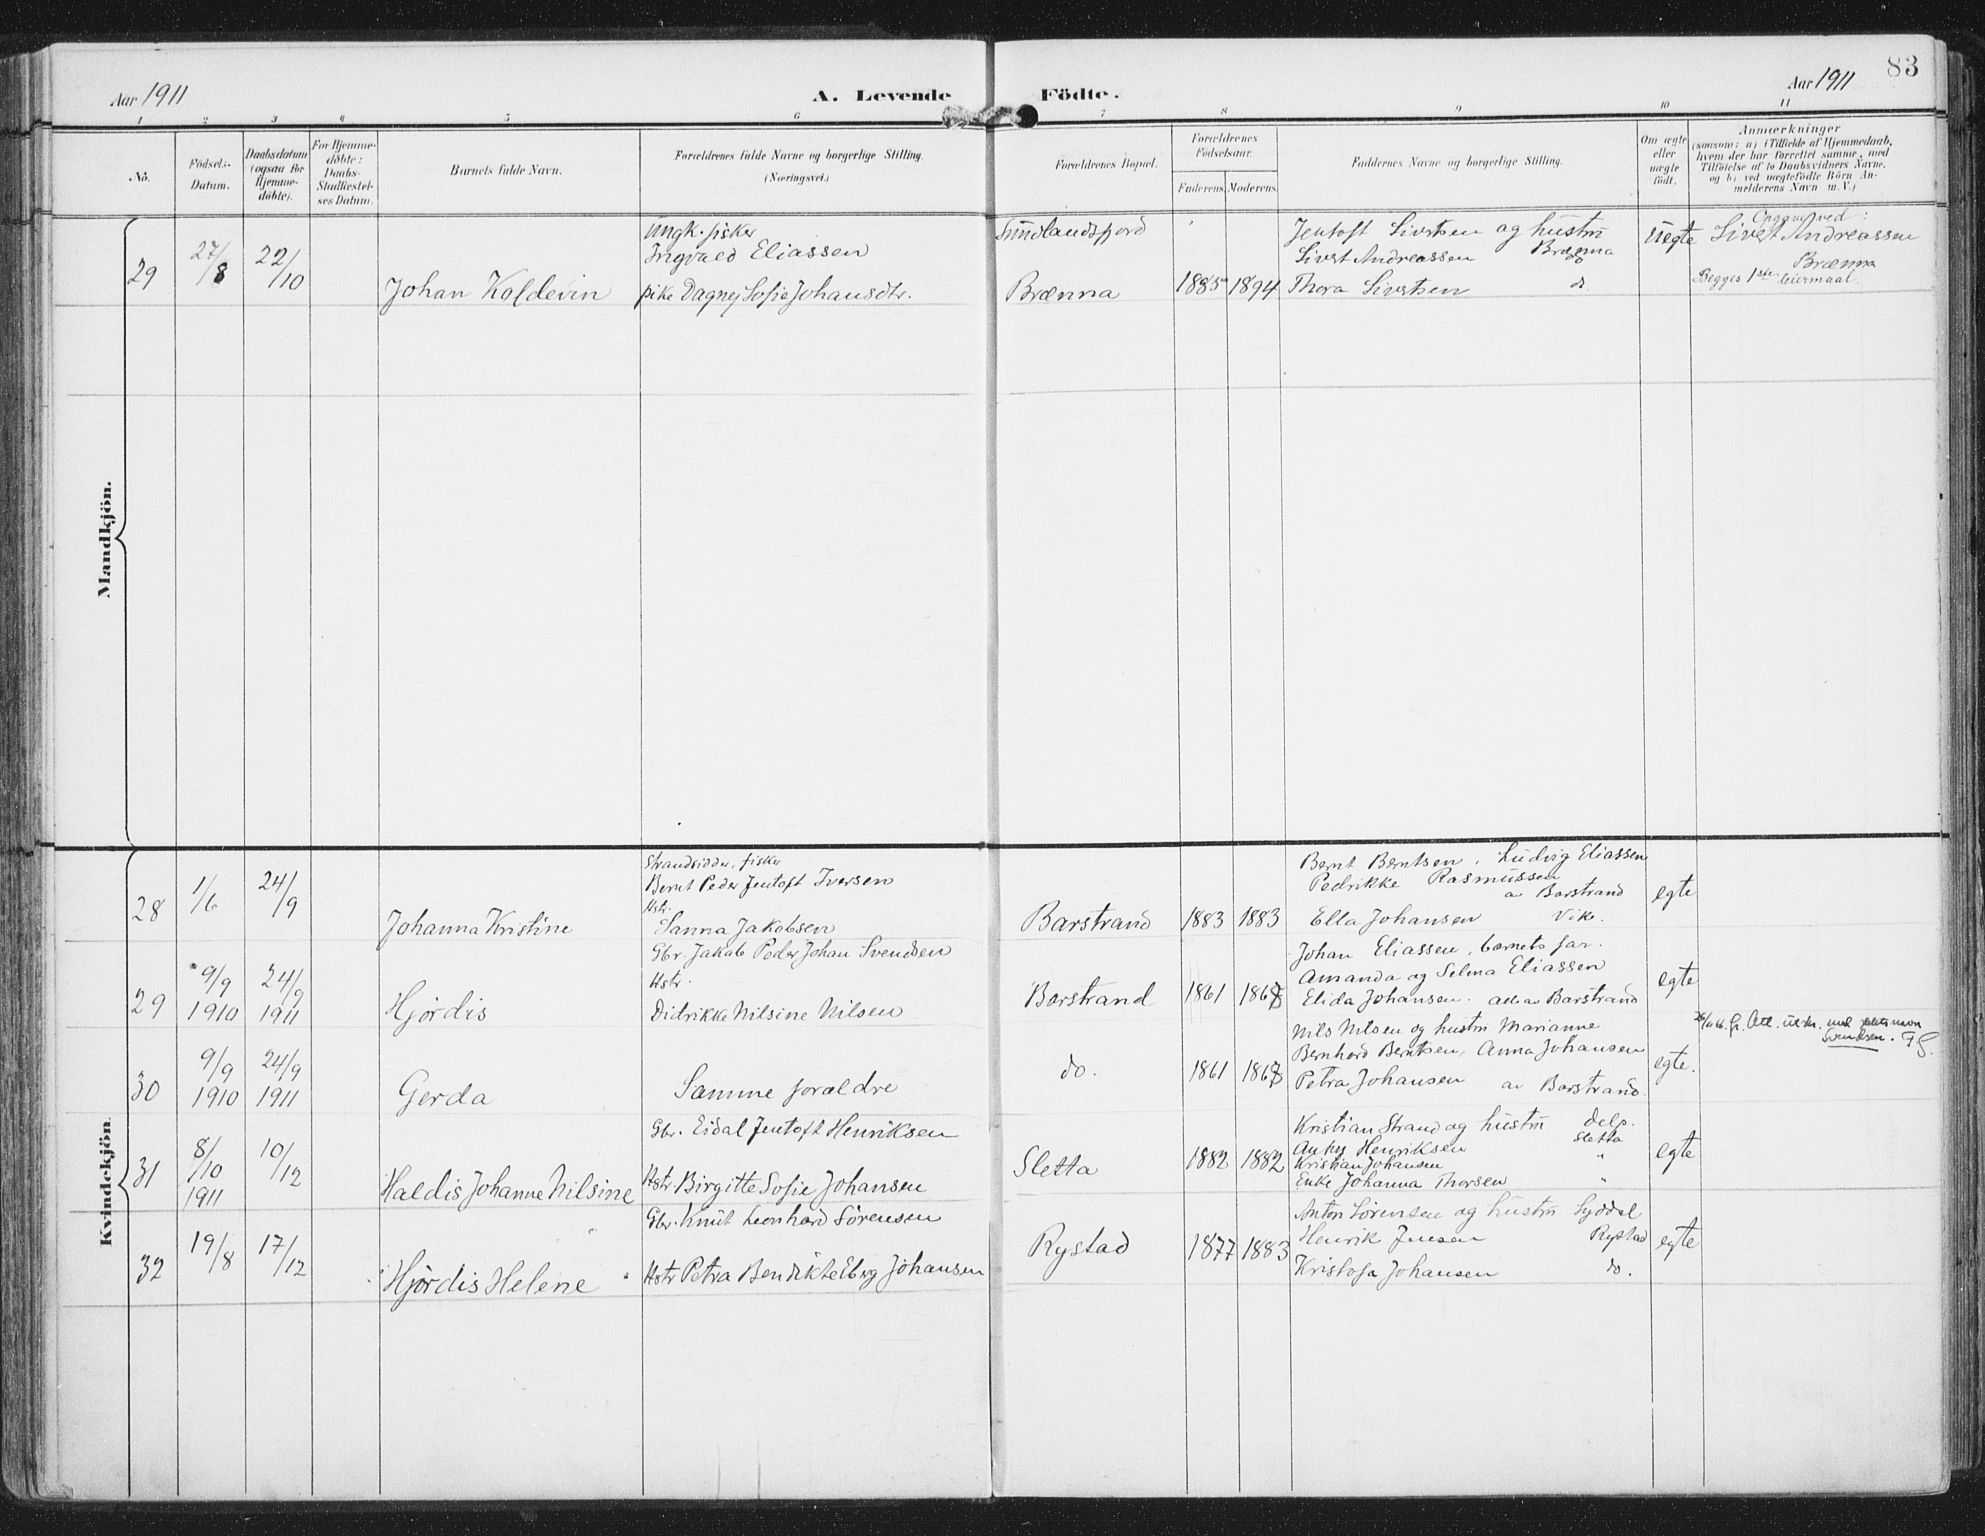 83
Aar 1911
A. Levende Födte.
Aar 1911
1 2 3 4 5 6 7 8 9 10 11
No.
Födsels-
Datum.
Daabsdatum
(ogsaa for
Hjemme-
döbte).
For Hjemme-
döbte:
Daabs-
Stadfæstel-
ses Datum.
Barnets fulde Navn.
Forældrenes fulde Navne og borgerlige Stilling.
(Næringsvei.)
Forældrenes Bopæl.
Forældrenes
Födselsaar.
Faderens. Moderens.
Faddernes Navne og borgerlige Stilling.
Om ægte
eller
uægte
født.
Anmærkninger
(saasom: a) i Tilfælde af Hjemmedaab,
hvem der har forrettet samme, med
Tilföielse af to Daabsvidners Navne.
og b) ved uægtefødte Börn An-
melderens Navn m. V.)
Mandkjön.
29
27/8
22/10
Johan Koldevin
Ungk. fisker
Ingvald Eliassen
pike Dagny Sofie Johansdtr.
Sundlandsfjord
Brænna
1885 1894
Jentoft Sivertsen og hustru
Sivert Andreassen Brænna
Thora Sivertsen do.
Uegte
Opgave ved:
Sivert Andreassen
Brænna
Begges 1ste leiermaal.
Kvindekjön.
28
1/6
24/9
Johanna Kristine
Strandsidder, fisker
Bernt Peder Jentoft Iversen
Hstr.
Sanna Jakobsen
Barstrand
1883 1883
Bernt Berntsen, Ludvig Eliassen
Pedrikke Rasmussen
av Barstrand
Ella Johansen Vik.
egte
29
9/9
1910
24/9
1911
Hjørdis
Gbr. Jakob Peder Johan Svendsen
Hstr.
Didrikke Nilsine Nilsen
Barstrand
1861 1868
Johan Eliassen, barnets far.
Amanda og Selma Eliassen
Elida Johansen. alle av Barstrand
egte
30
9/9
1910
24/9
1911
Gerda
Samme forældre
do.
1861 1868
Nils Nilsen og hustru Marianne
Bernhard Berntsen, Anna Johansen
Petra Johansen av Barstrand.
egte.
Svendsen. F.G.
31
8/10
1911
10/12
Haldis Johanne Nilsine
Gbr. Eidal Jentoft Henriksen
Hstr Birgitte Sofie Johansen
Sletta
1882 1882
Kristian Strand og hustru Delp.
Henriksen Sletta
Kristian Johansen "
Enke Johanna Thorsen "
egte
32
19/8
17/12
Hjørdis Helene
Gbr. Knut Leonhard Sørensen
Hstr Petra Bendikte Johansen
Rystad
1877 1883
Anton Sørensen og hustru Syddal
Henrik Jensen Rystad
Kristofa Johansen do.
egte